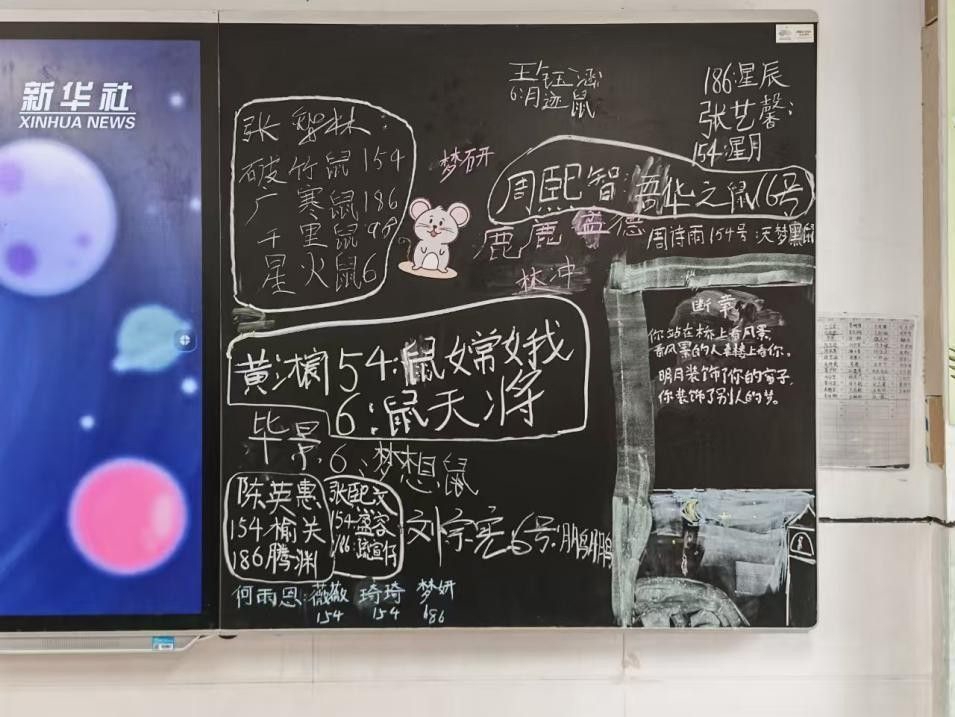 新华社
XINHUA NEWS
王钰涵
6:月迹鼠
186:星辰
张艺馨:
154:星月
张黎林:
破竹鼠154
广寒鼠186
千里鼠98
星火鼠6
梦研
周熙智:吾华之鼠16号
鹿鹿 盖德
周诗雨154号:天梦黑鼠
林冲
断章:
你站在桥上看风景,
看风景的人在楼上看你。
明月装饰了你的窗子,
你装饰了别人的梦。
黄 54:鼠嫦娥
6:鼠天将
毕景
6、梦想鼠
陈英惠
154榆关
186腾渊
张熙文
154盛容
186
刘宗宪6号:鹏鹏
何雨恩:薇薇 琦琦 梦妍
154 154 686